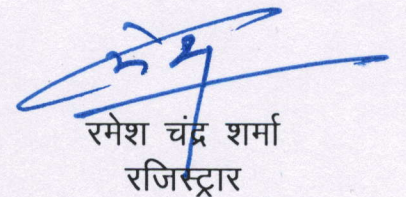 रमेश चंद्र शर्मा
रजिस्ट्रार